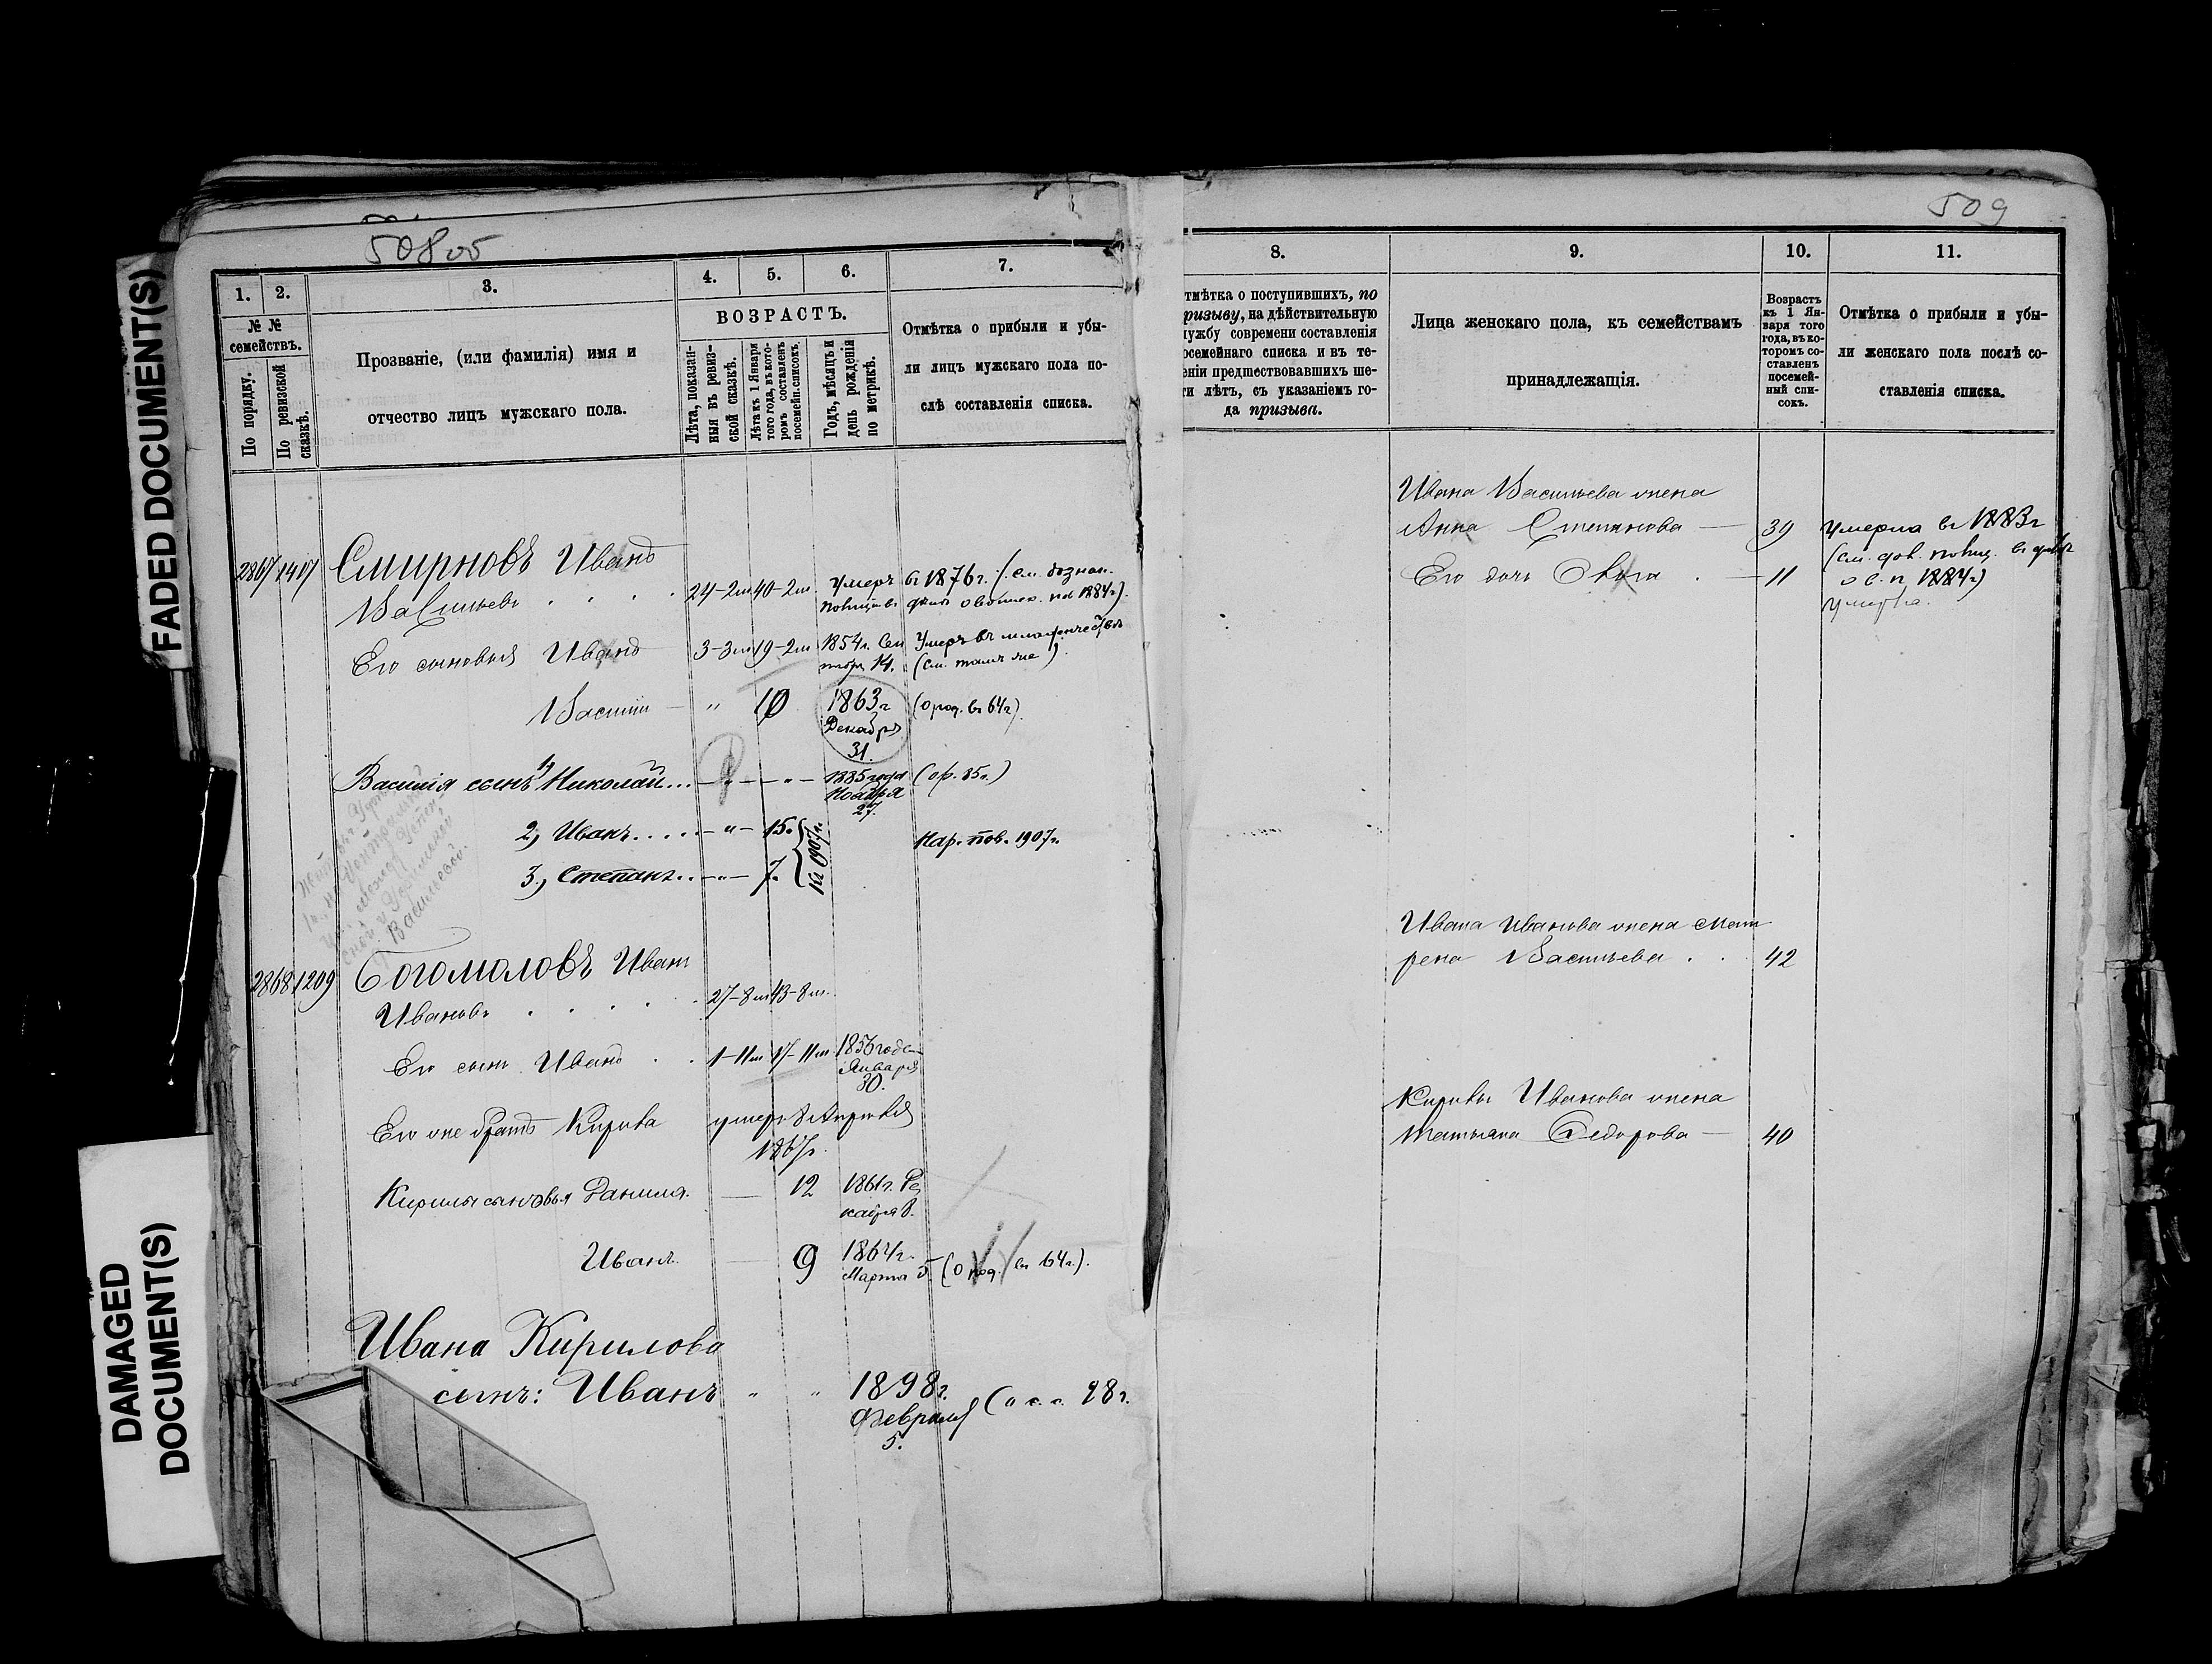 FADED DOCUMENT(S)
DAMAGED
DOCUMENT(S)
508об
509
1.
2.
3.
4.
5.
6.
7.
№ №
семействъ.
По порядку.
По ревизской
сказкѣ.
Прозваніе, (или фамилія) имя и
отчество лицъ мужскаго пола.
ВОЗРАСТЪ.
Лѣта, показан-
ныя въ ревиз-
ской сказкѣ.
Лѣта къ 1 Января
того года, въ кото-
ромъ составленъ
посемейн. списокъ.
Годъ, мѣсяцъ и
день рожденія
по метрикѣ.
Отмѣтка о прибыли и убы-
ли лицъ мужскаго пола по-
слѣ составленія списка.
2867 1407 Смирновъ Иванъ
Васильевъ 24-2м 40-2м Умеръ въ 1876г. (см. дознан.
1884г.).
Его сыновья Иванъ 3-3м 19-2м 1854г. Сен Умеръ въ младенчествѣ
тября 14. (см. тамъ же)
Василій — " 10 1863г (о род. въ 64г).
Декабря
31.
Василія сынъ 1) Николай... — " — " — 1885 года (ор. 85г.)
Ноября
27.
2, Иванъ..... — " — 15. Къ 1907г. Нар. пов. 1907г.
3, Степанъ.. — " — 7.
Васильевой.
2868 1209 Богомоловъ Иванъ
Ивановъ 27-8м 43-8м.
Его сынъ Иванъ 1-11м 17-11м 1856 года
Января
30.
Его же братъ Кирила умеръ 8 Апрѣля
1867г.
Кирилы сыновья Данила. — 12 1861г. Де
кабря 8.
Иванъ. — 9 1864г.
Марта 5. (о род. въ 64г.).
Ивана Кирилова
сынъ: Иванъ " " 1898г.
Февраля
5.
8.
9.
10.
11.
тмѣтка о поступившихъ, по
ризыву, на дѣйствительную
лужбу современи составленія
осемейнаго списка и въ те-
еніи предшествовавшихъ ше-
ти лѣтъ, съ указаніемъ го-
да призыва.
Лица женскаго пола, къ семействамъ
принадлежащія.
Возрастъ
къ 1 Ян-
варя того
года, въ ко-
торомъ со-
ставленъ
посемей-
ный спи-
сокъ.
Отмѣтка о прибыли и убы-
ли женскаго пола послѣ со-
ставленія списка.
Ивана Васильева жена
Анна Степанова — 39 Умерла въ 1883г
(см. дов. полиц.
Его дочь Ольга — 11 о в. п. 1884г)
умерла.
Ивана Иванова жена Мат
рена Васильева . . 42
Кирилы Иванова жена
Татьяна Федорова — 40